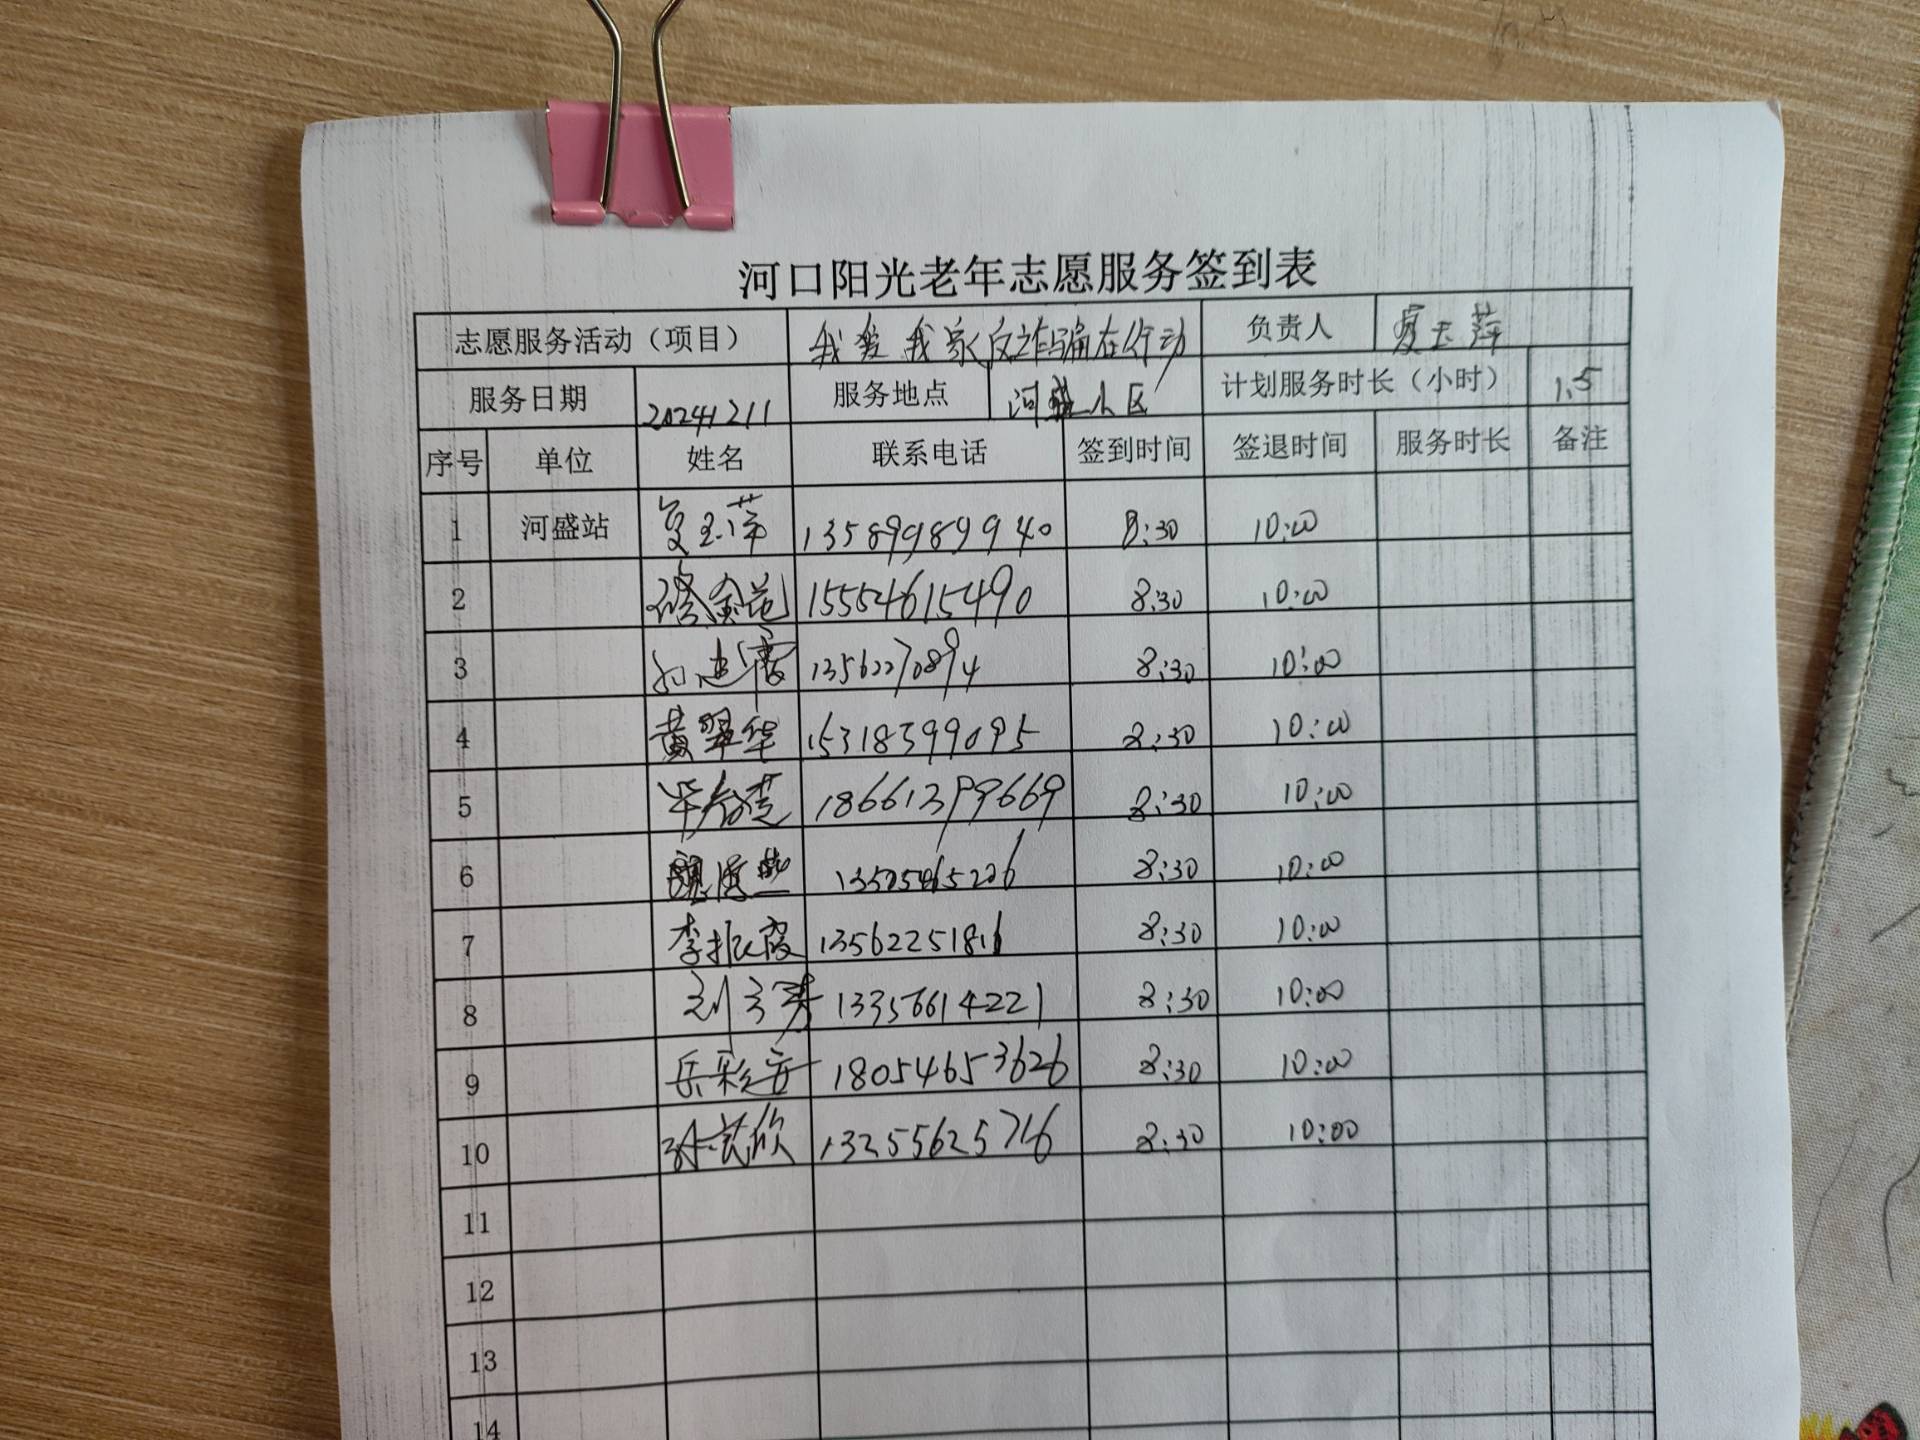 河口阳光老年志愿服务签到表
志愿服务活动（项目） 我爱我家反诈骗在行动 负责人 夏玉萍
服务日期 20241211 服务地点 河盛小区 计划服务时长（小时） 1.5
序号 单位 姓名 联系电话 签到时间 签退时间 服务时长 备注
1 河盛站 夏玉萍 13589989940 8:30 10:00
2 15554615490 8:30 10:00
3 13562270894 8:30 10:00
4 黄翠华 15318399095 8:30 10:00
5 18661399669 8:30 10:00
6 8:30 10:00
7 李振霞 13562251816 8:30 10:00
8 13356614221 8:30 10:00
9 岳彩安 18054653626 8:30 10:00
10 13255625716 8:30 10:00
11
12
13
14